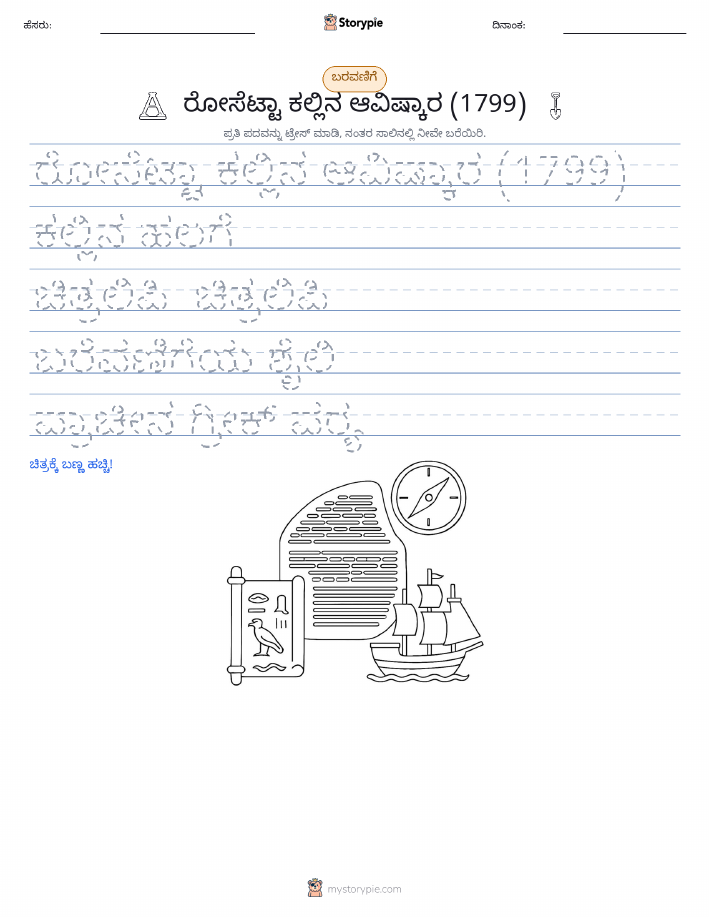 ಹೆಸರು:
Storypie
ದಿನಾಂಕ:
ಬರವಣಿಗೆ
ರೋಸೆಟ್ಟಾ ಕಲ್ಲಿನ ಆವಿಷ್ಕಾರ (1799)
ಪ್ರತಿ ಪದವನ್ನು ಟ್ರೇಸ್ ಮಾಡಿ, ನಂತರ ಸಾಲಿನಲ್ಲಿ ನೀವೇ ಬರೆಯಿರಿ.
ರೋಸೆಟ್ಟಾ ಕಲ್ಲಿನ ಆವಿಷ್ಕಾರ (1799)
ಕಲ್ಲಿನ ಹಲಗೆ
ಚಿತ್ರಲಿಪಿ ಚಿತ್ರಲಿಪಿ
ಬರೆವಣಿಗೆಯ ಶೈಲಿ
ಪ್ರಾಚೀನ ಗ್ರೀಕ್ ಪಠ್ಯ
ಚಿತ್ರಕ್ಕೆ ಬಣ್ಣ ಹಚ್ಚಿ!
mystorypie.com